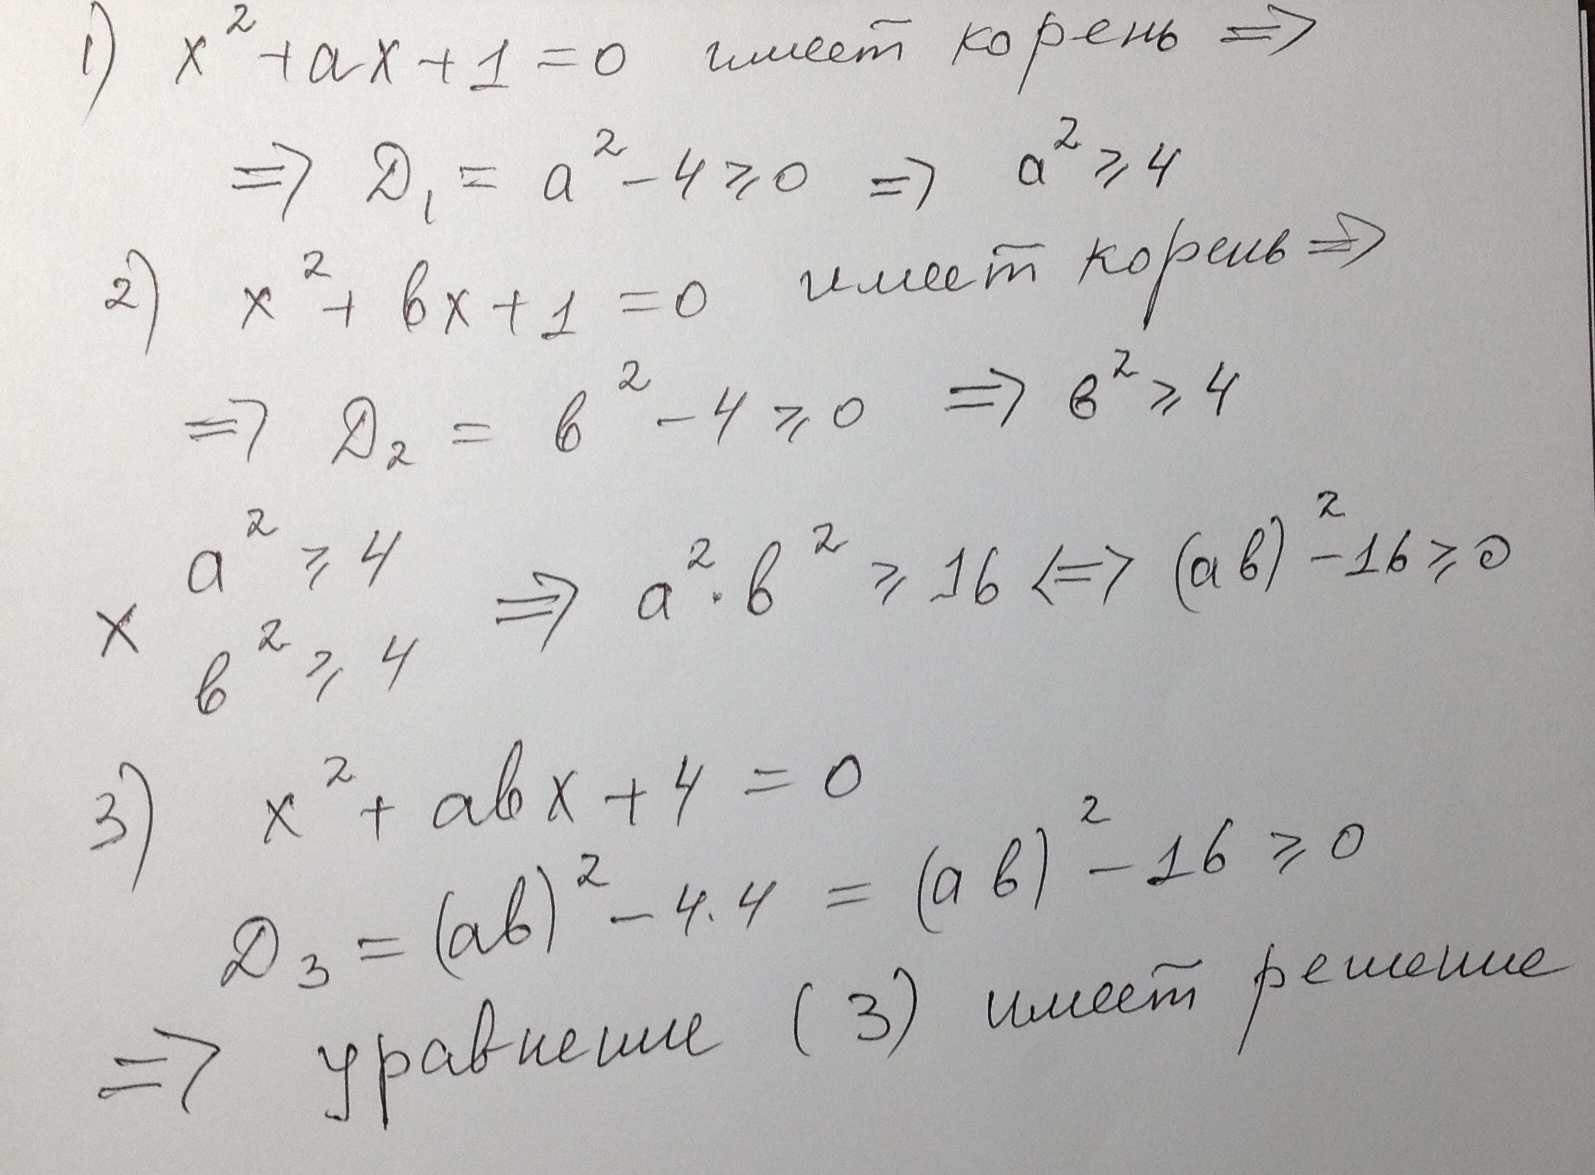 1) x²+ax+1=0 имеет корень =>
=> D₁ = a²-4⩾0 => a²⩾4
2) x²+вx+1=0 имеет корень =>
=> D₂ = в²-4⩾0 => в²⩾4
x a²⩾4 => a²·в²⩾16 <=> (aв)²-16⩾0
в²⩾4
3) x²+aвx+4=0
D₃=(aв)²-4·4=(aв)²-16⩾0
=> уравнение (3) имеет решение